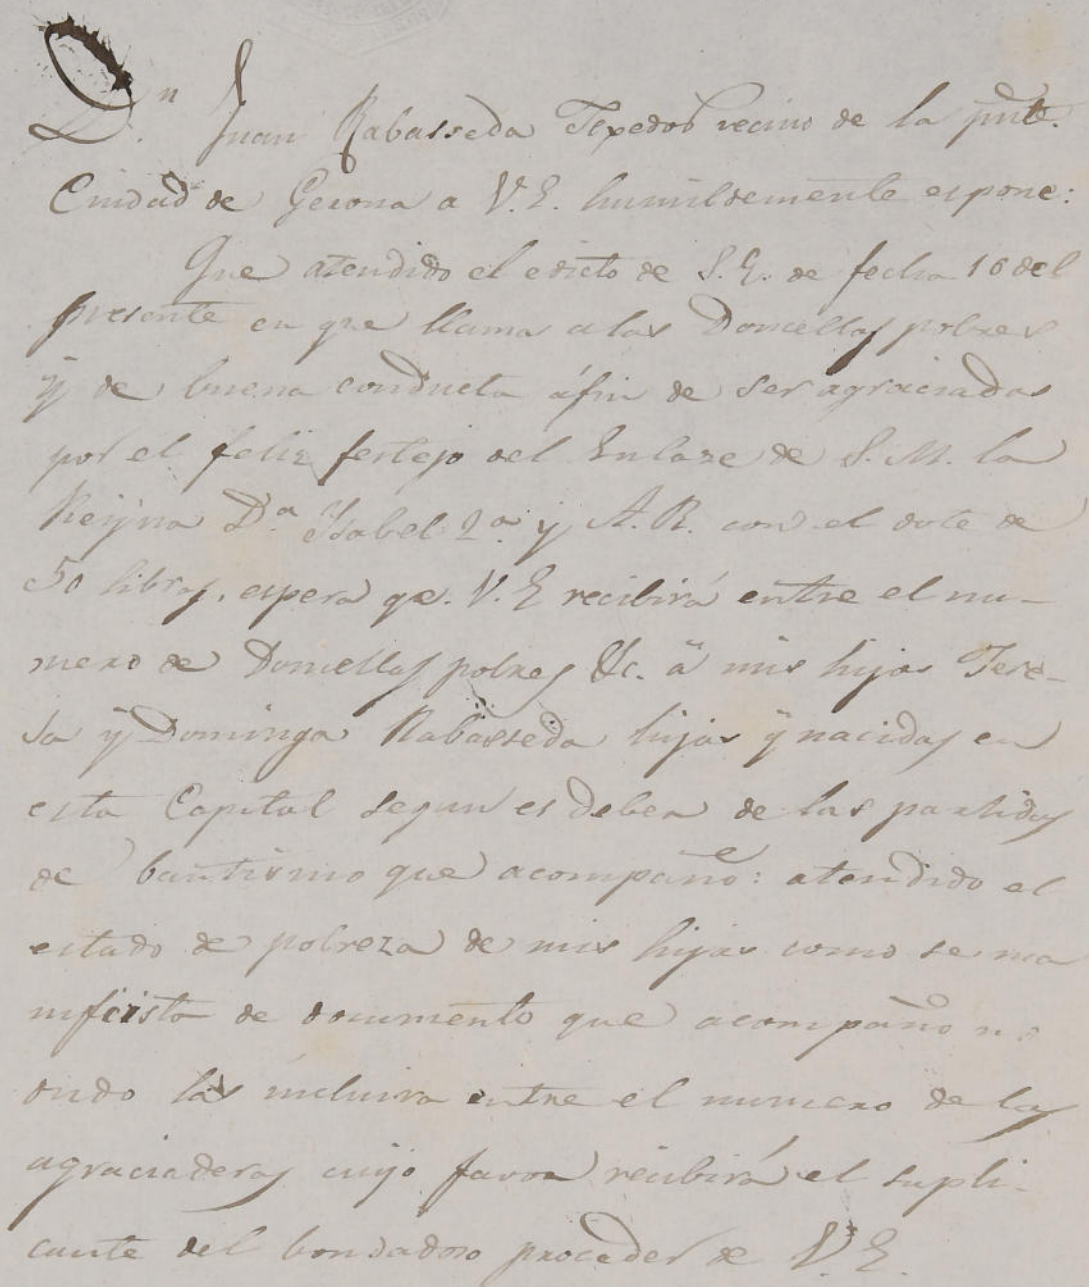 Dn. Juan Rabasseda Texedor vecino de la pnte.
Ciudad de Gerona a V.E. humildemente espone:
Que atendido el edicto de S.E. de fecha 16 del
presente en que llama a las Doncellas pobres
ÿ de buena conducta áfin de ser agraciadas
por el feliz festejo del Enlaze de S.M. la
Reÿna Da. Ysabel 2a. y A.R. con el dote de
50 libras, espera qe. V.E recibirá entre el nu-
mero de Doncellas pobres &c. a mis hijas Tere-
sa ÿ Dominga Rabasseda hijas ÿ nacidas en
esta Capital segun es deber de las partidas
de bautismo que acompaño: atendido el
estado de pobreza de mis hijas como se ma
nifiesta de documento que acompaño no
dudo las incluira entre el numero de las
agraciaderas cuyo favor recibirá el supli-
cante del bondadoso proceder de V.E.